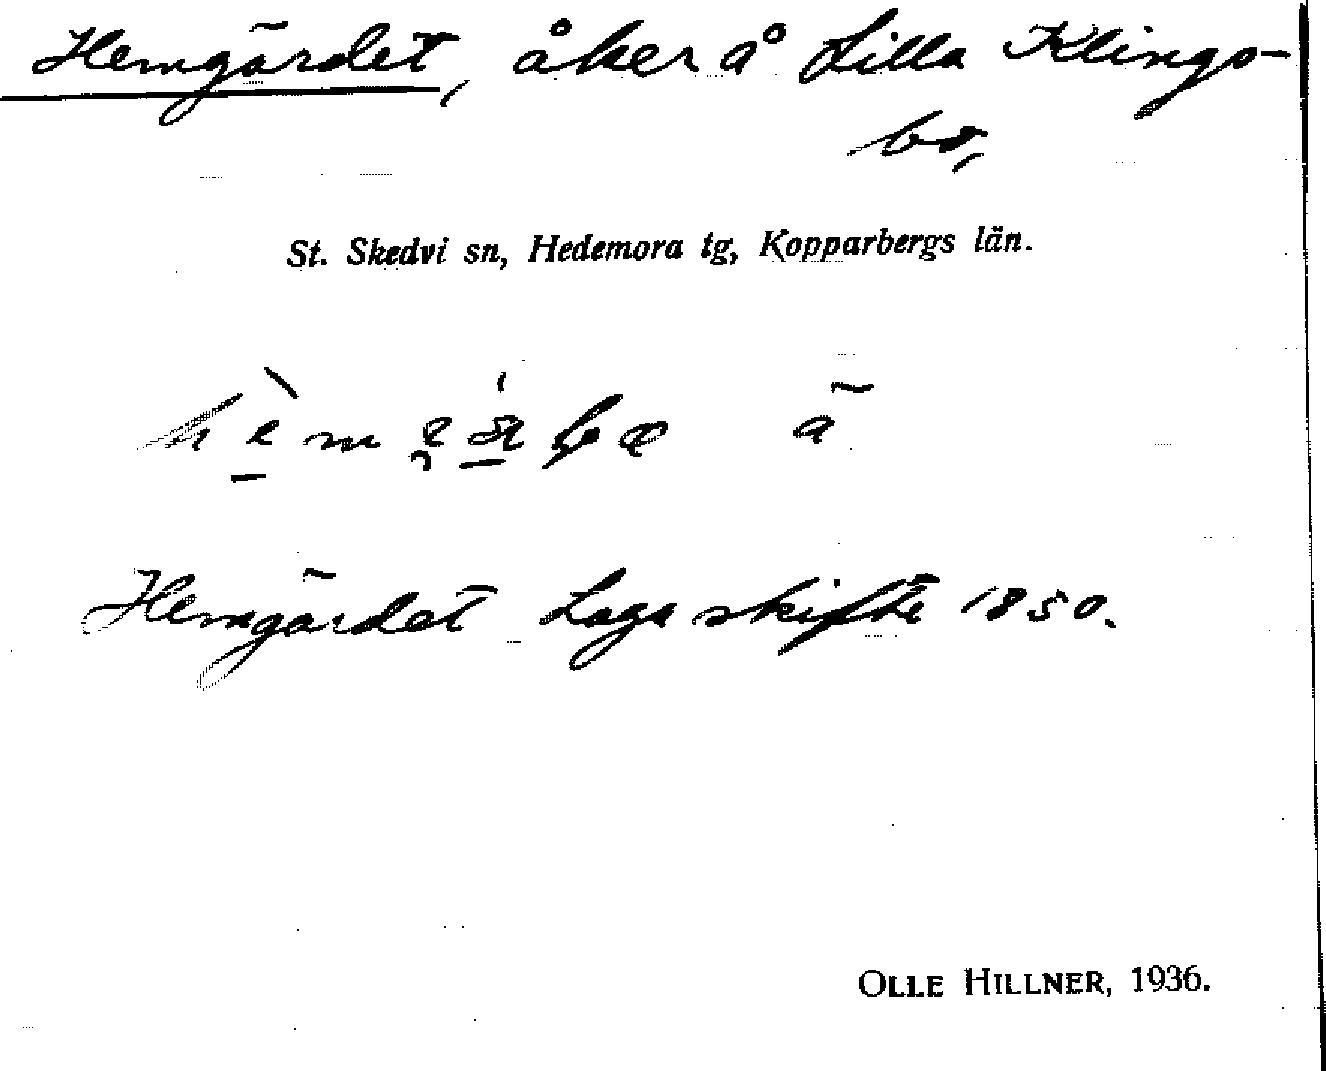 Hemgärdet, åker å Lilla Klings-
bo,
St. Skedvi sn, Hedemora tg, Kopparbergs län.
Hemgärdet Laga skifte 1850.
OLLE HILLNER, 1936.